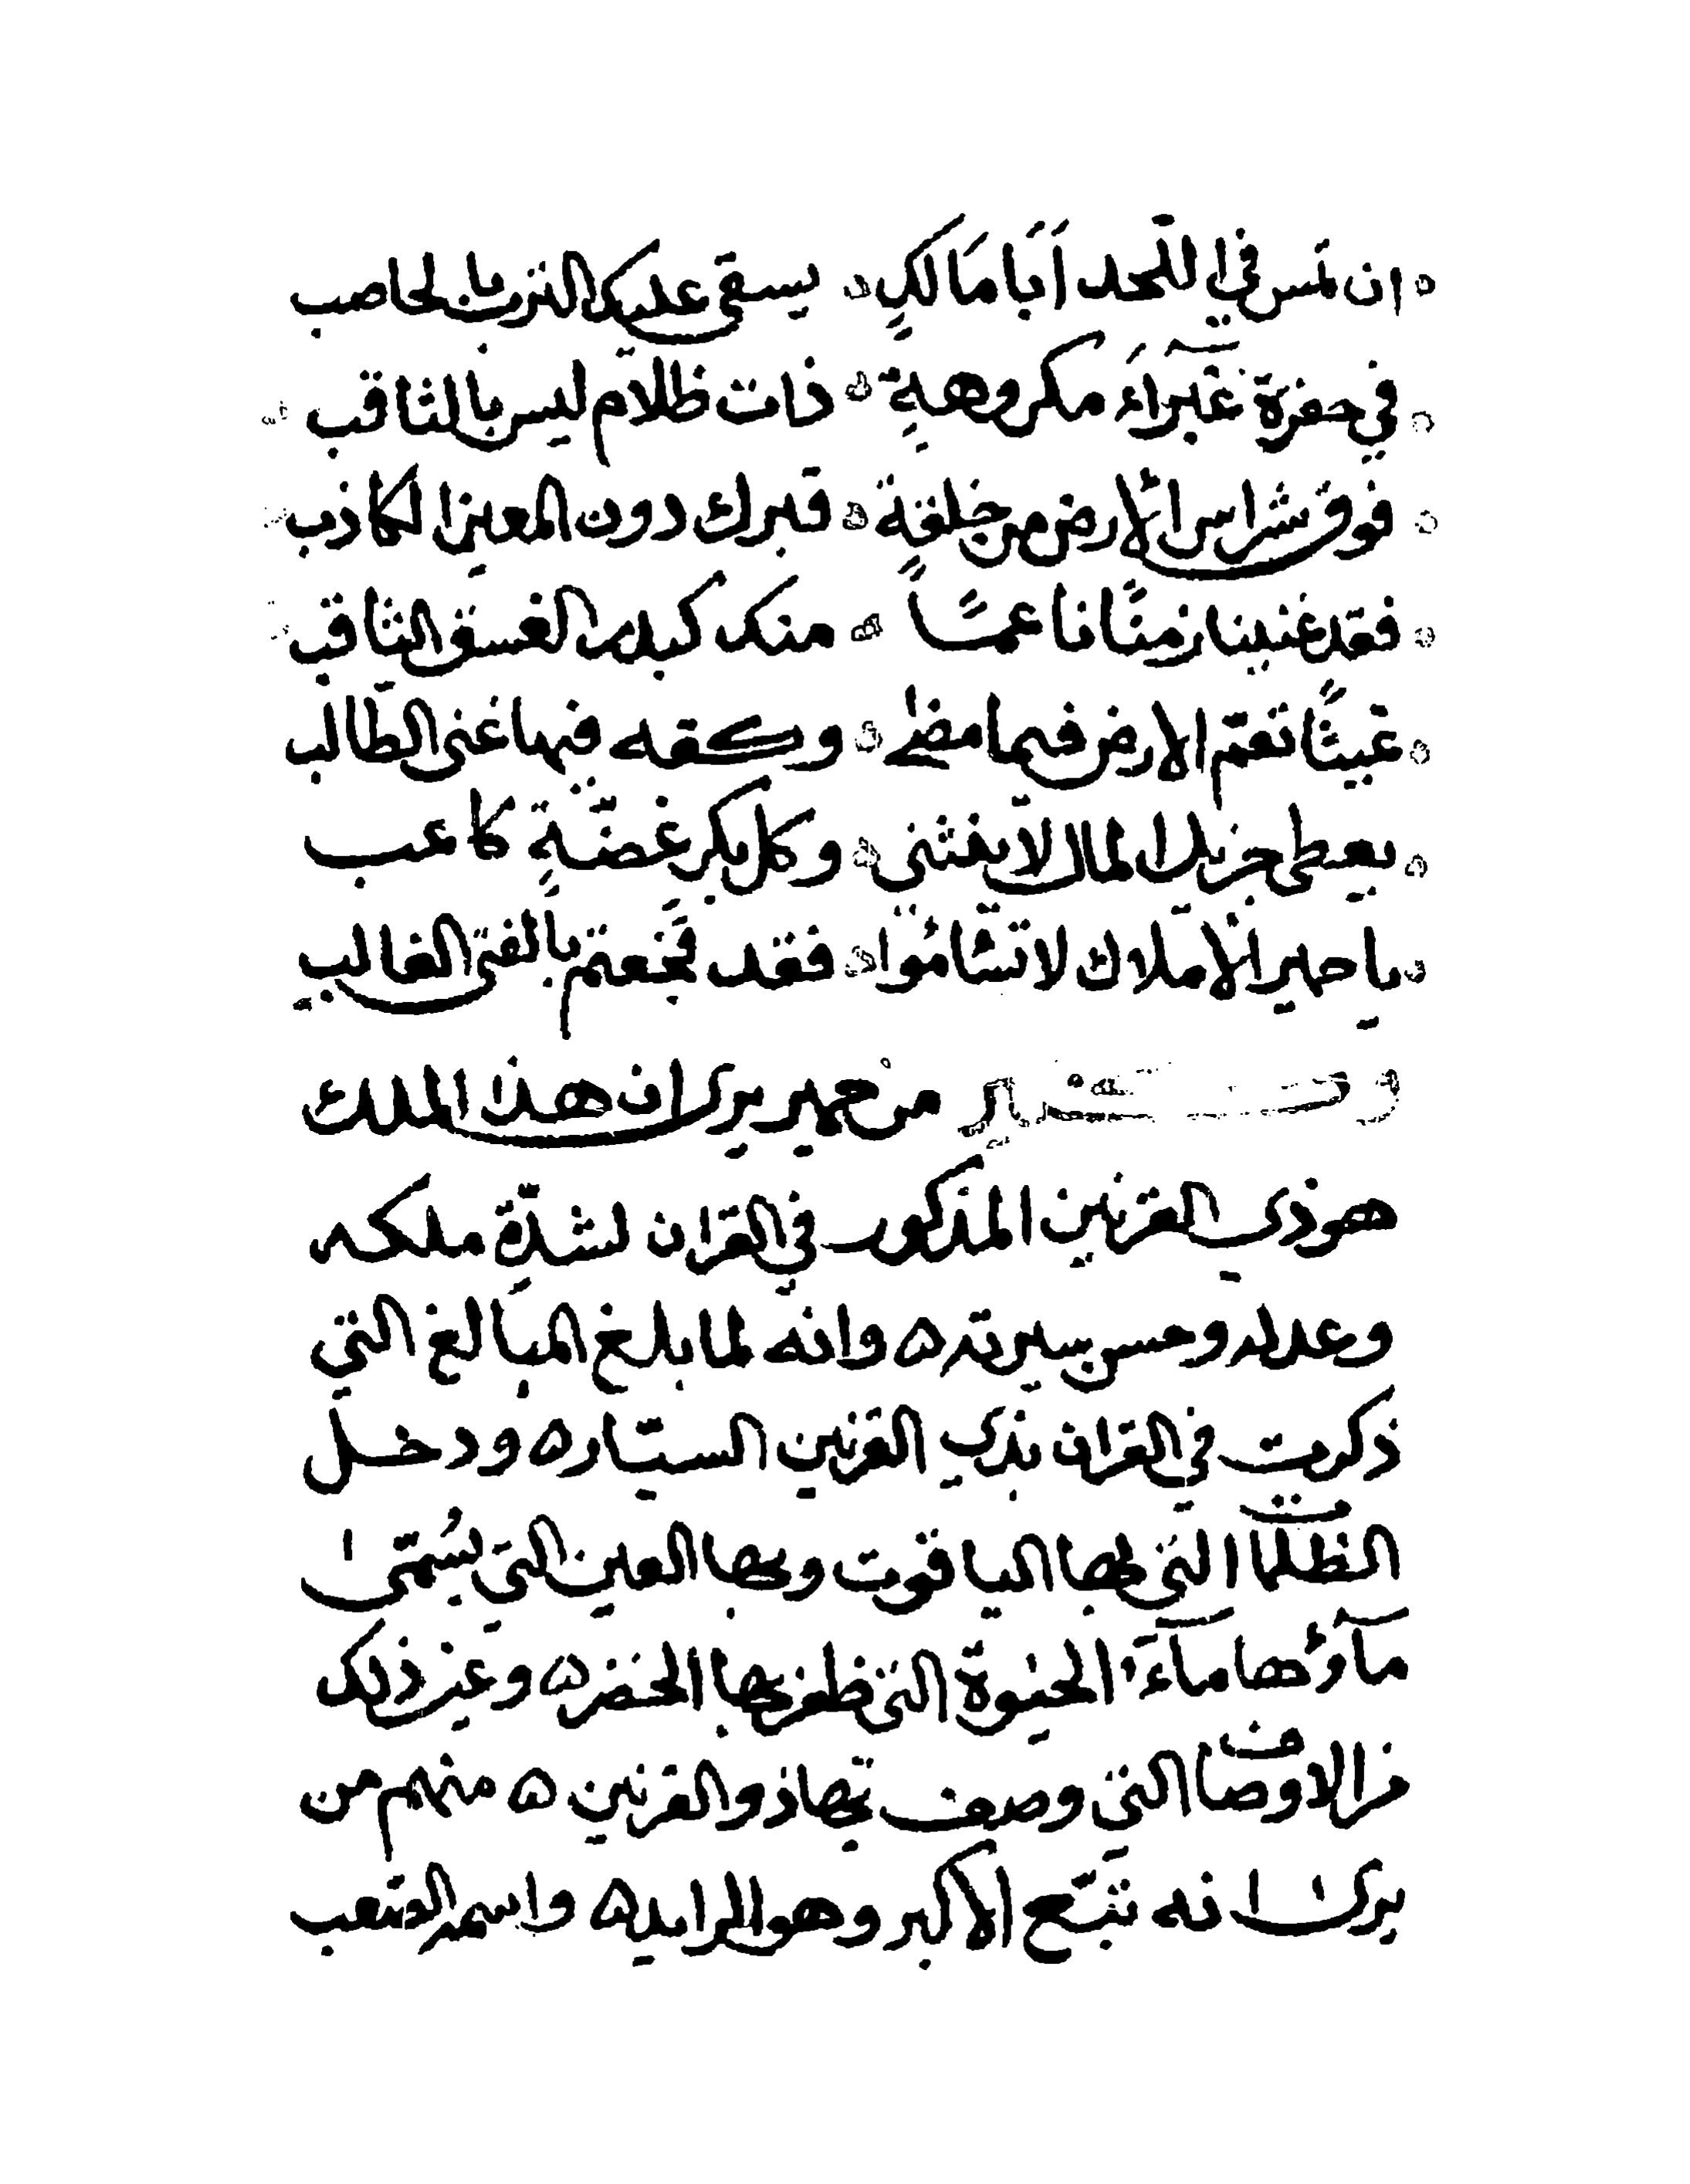 ان تمس في اللّحد أبا مالكٍ يسقى عليك الترب بالحاصب
في حفرة غبرآء مكروهةٍ ذات ظلام ليس بالثاقب
فوق شراس الارض من خلقةٍ قبرك دون المعين الكاذب
فقد غنينا زمنًا ناعمًا منك كبدر الغسق الثاقب
غيثًا تعمّ الارض فيما مضى وكفه فيها غنى الطّالب
يعطى جزيل المال لا ينثني وكل بكر غضّةٍ كاعب
يا حمير الأملاك لا تشّامُوا فقد فجعتم بالفتى الغالب
وكثير من حمير يرى ان هذا الملك
هو ذي القرنين المذكور في القران لشدّة ملكه
وعدله وحسن سيرته ه وانه لما بلغ المبالغ التي
ذكرت في القران بذي القرنين السيّار ه ودخل
الظلمات التي بها الياقوت وبها العين التي يُسمّى
مآؤها مآء الحيوة التي ظفر بها الخضر ه وغير ذلك
من الاوصاف التي وصف بها ذو القرنين ه منهم من
يرى انه تبّع الاكبر وهو الرايد ه واسمه الصعب